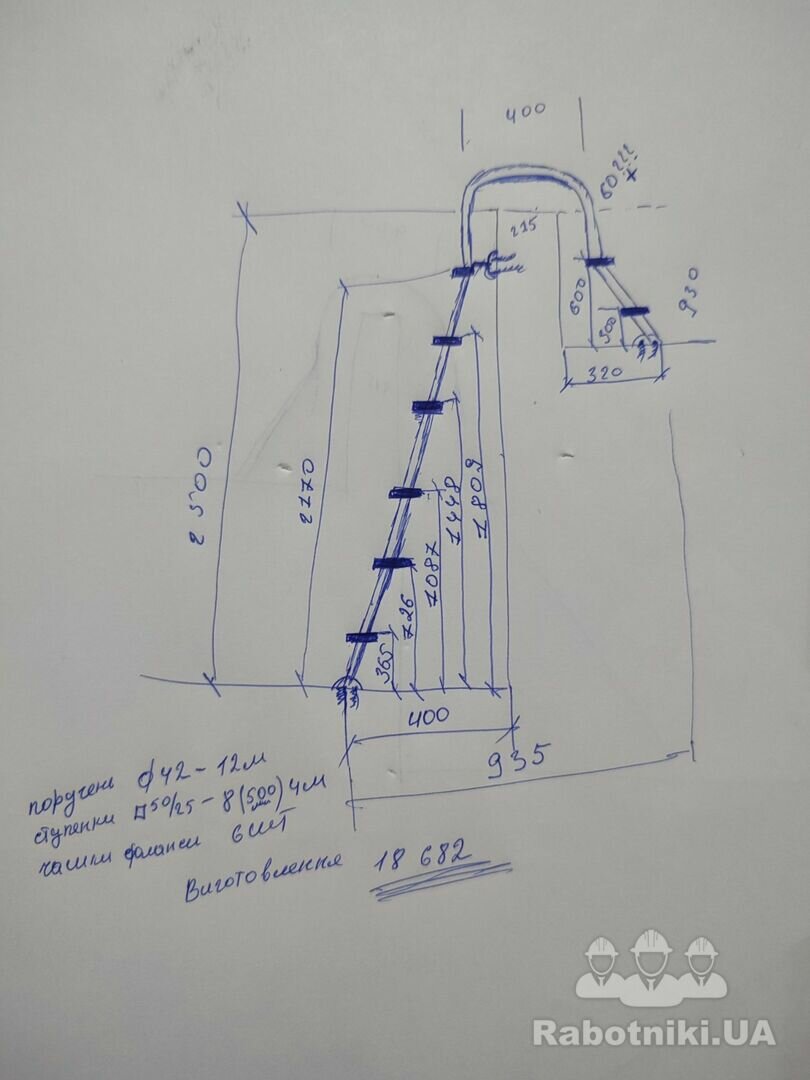 400
60
215
600
930
300
320
2500
2170
1809
1448
1087
726
365
400
935
поручень ф42 - 12м
ступенки 50/25 - 8(500)4м
чашки фланси 6шт
Виготовлення 18 682
Rabotniki.UA